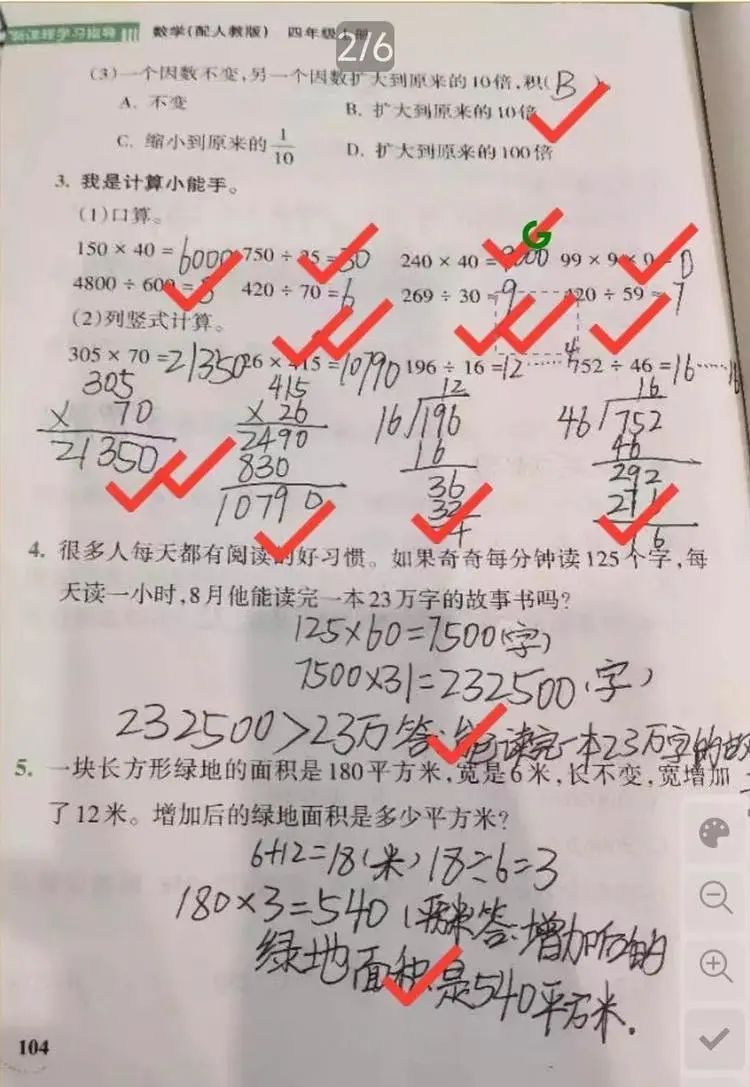 新课程学习指导 数学(配人教版) 四年级上册
2/6
(3)一个因数不变,另一个因数扩大到原来的10倍,积( B )。
A. 不变 B. 扩大到原来的10倍
C. 缩小到原来的1/10 D. 扩大到原来的100倍
3. 我是计算小能手。
(1)口算。
150 × 40 = 6000 750 ÷ 25 = 30 240 × 40 = 9600 99 × 9 × 0 = 0
4800 ÷ 600 = 8 420 ÷ 70 = 6 269 ÷ 30 ≈ 9 420 ÷ 59 ≈ 7
(2)列竖式计算。
305 × 70 = 21350 26 × 415 = 10790 196 ÷ 16 = 12……4 752 ÷ 46 = 16……16
305 415 12 16
× 70 × 26 16 196 46 752
21350 2490 16 46
830 36 292
10790 32
4 16
4. 很多人每天都有阅读的好习惯。如果奇奇每分钟读125个字,每
天读一小时,8月他能读完一本23万字的故事书吗?
125×60=7500(字)
7500×31=232500(字)
232500>23万 答:能读完一本23万字的故
5. 一块长方形绿地的面积是180平方米,宽是6米,长不变,宽增加
了12米。增加后的绿地面积是多少平方米?
6+12=18(米) 18÷6=3
180×3=540(平方米)答:增加后的
绿地面积是540平方米.
104